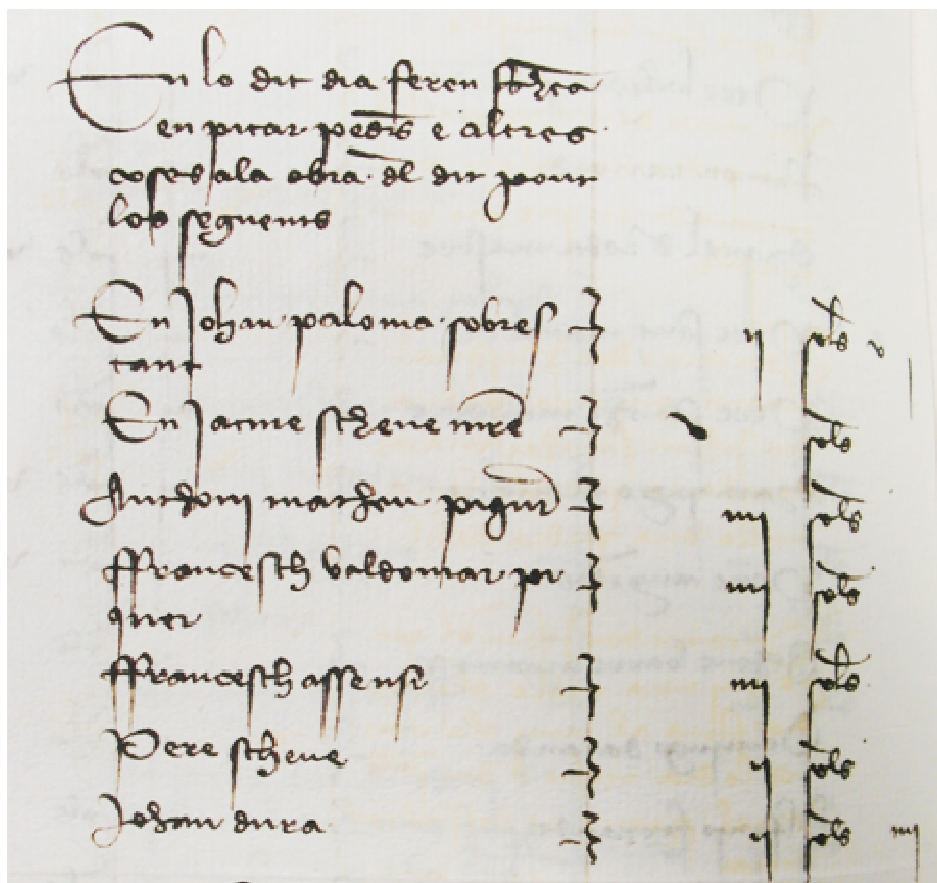 En lo dit dia feren fahena
en picar pedris e altres
coses ala obra dl dit pont
los seguents
En Johan paloma sobres ij sols v
tant
En Jacme stheve mre v sols
Anthoni matheu piquer iiij sols
ffrancesch valdomar pi iiij sols
quer
ffrancesch assensi iiij sols
Pere stheve ij sols
Johan dura ij sols iiij